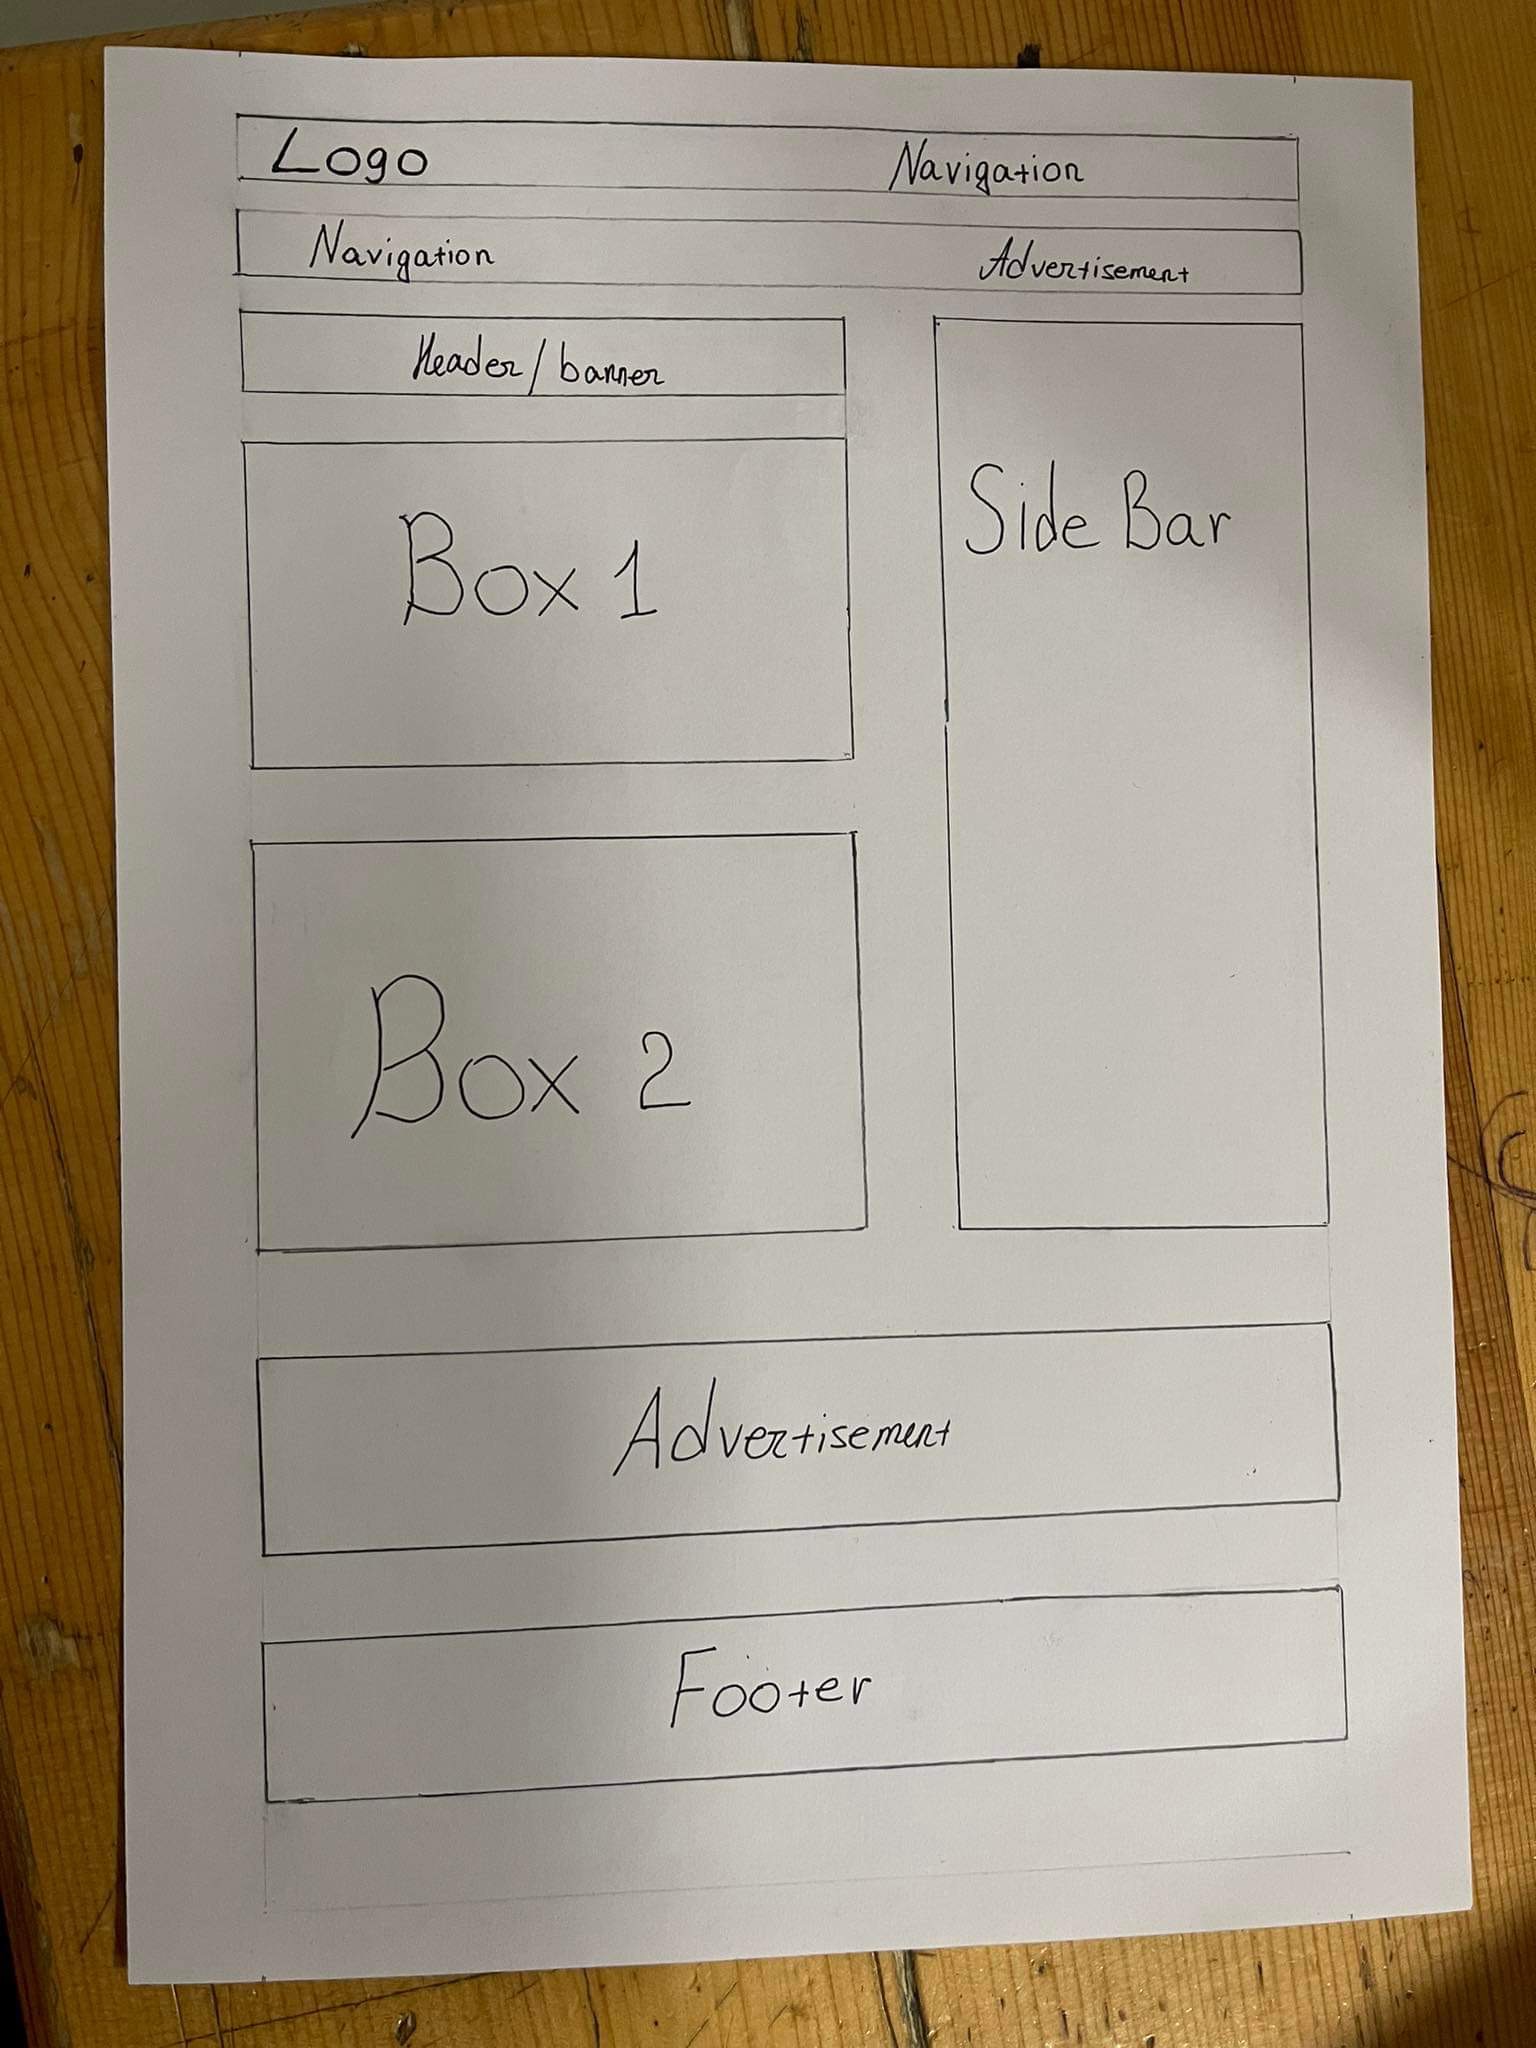 Logo Navigation
Navigation Advertisement
Header/banner
Side Bar
Box 1
Box 2
Advertisement
Footer